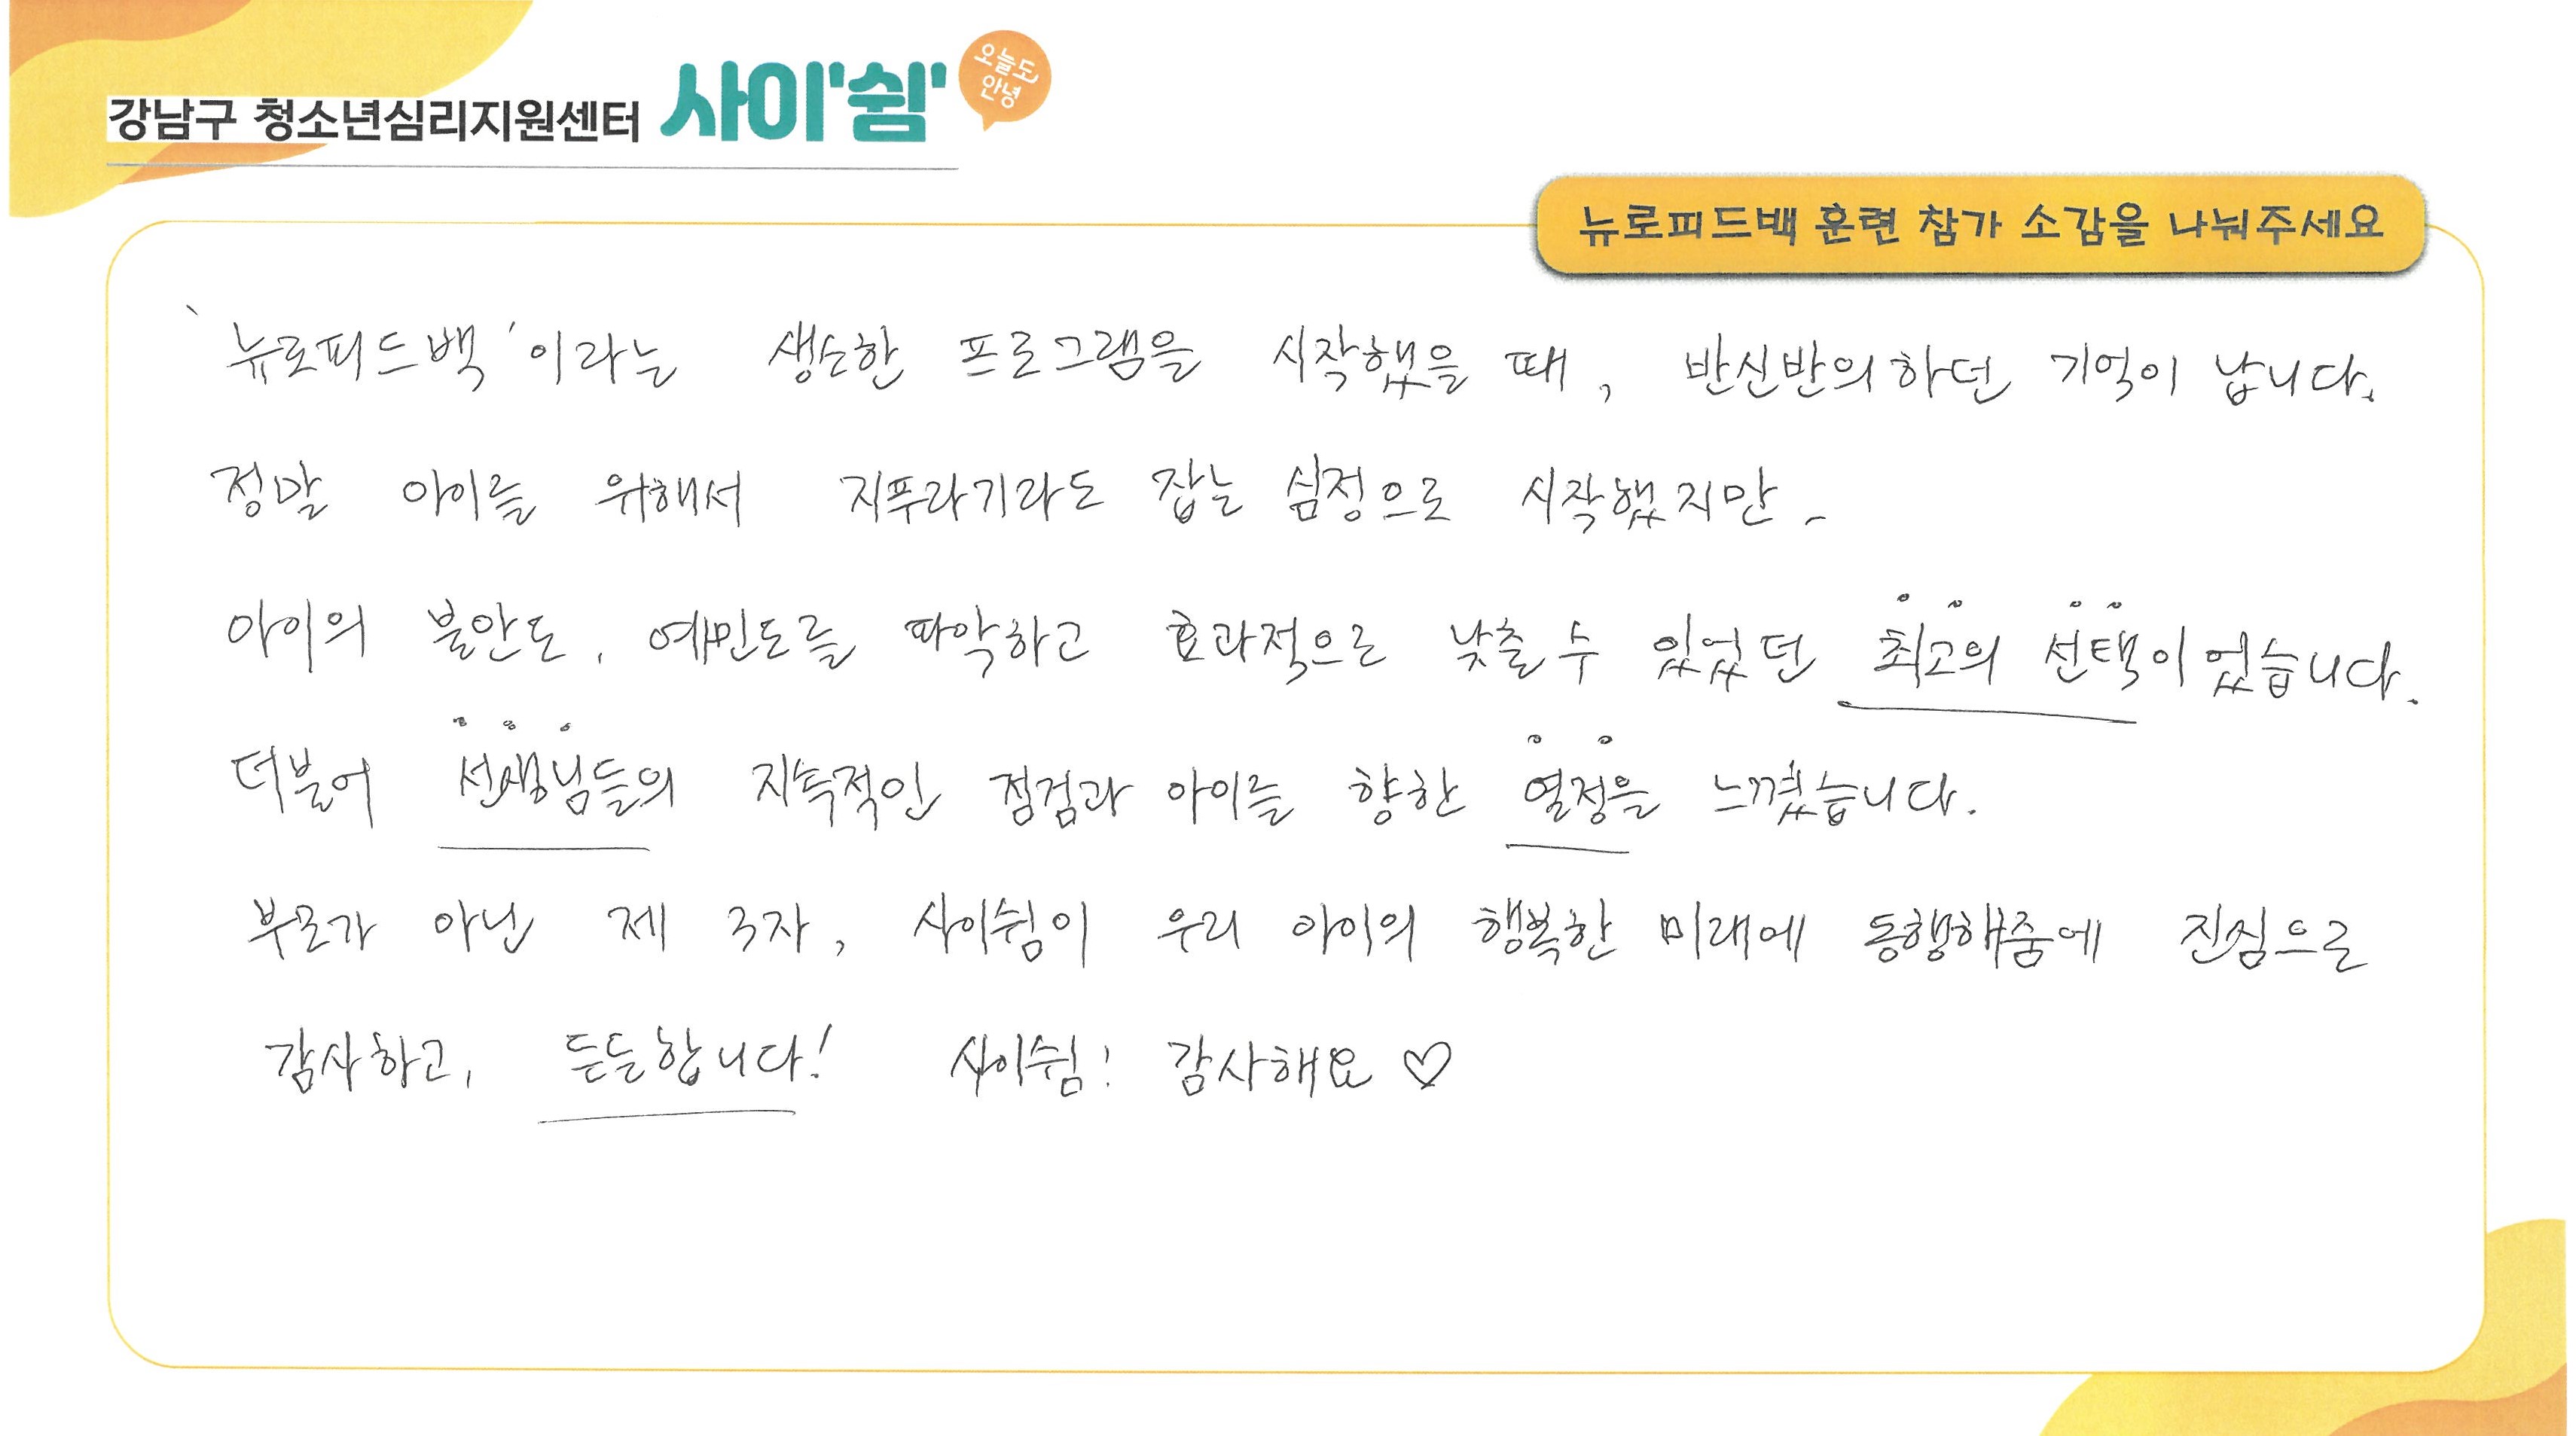 강남구 청소년심리지원센터 사이'쉼'
오늘도
안녕
뉴로피드백 훈련 참가 소감을 나눠주세요
'뉴로피드백'이라는 생소한 프로그램을 시작했을 때, 반신반의하던 기억이 납니다.
정말 아이를 위해서 지푸라기라도 잡는 심정으로 시작했지만-
아이의 불안도, 예민도를 파악하고 효과적으로 낮출 수 있었던 최고의 선택이었습니다.
더불어 선생님들의 지속적인 점검과 아이를 향한 열정을 느꼈습니다.
부모가 아닌 제 3자, 사이쉼이 우리 아이의 행복한 미래에 동행해줌에 진심으로
감사하고, 든든합니다! 사이쉼! 감사해요♡